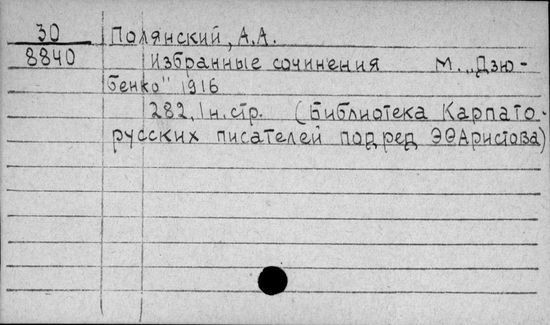 30 Полянский, А.А.
8840 Избранные сочинения М. „Дзю-
бенко" 1916
282, 1 н. стр. (Библиотека Карпато-
русских писателей под ред ЭѲАристова)